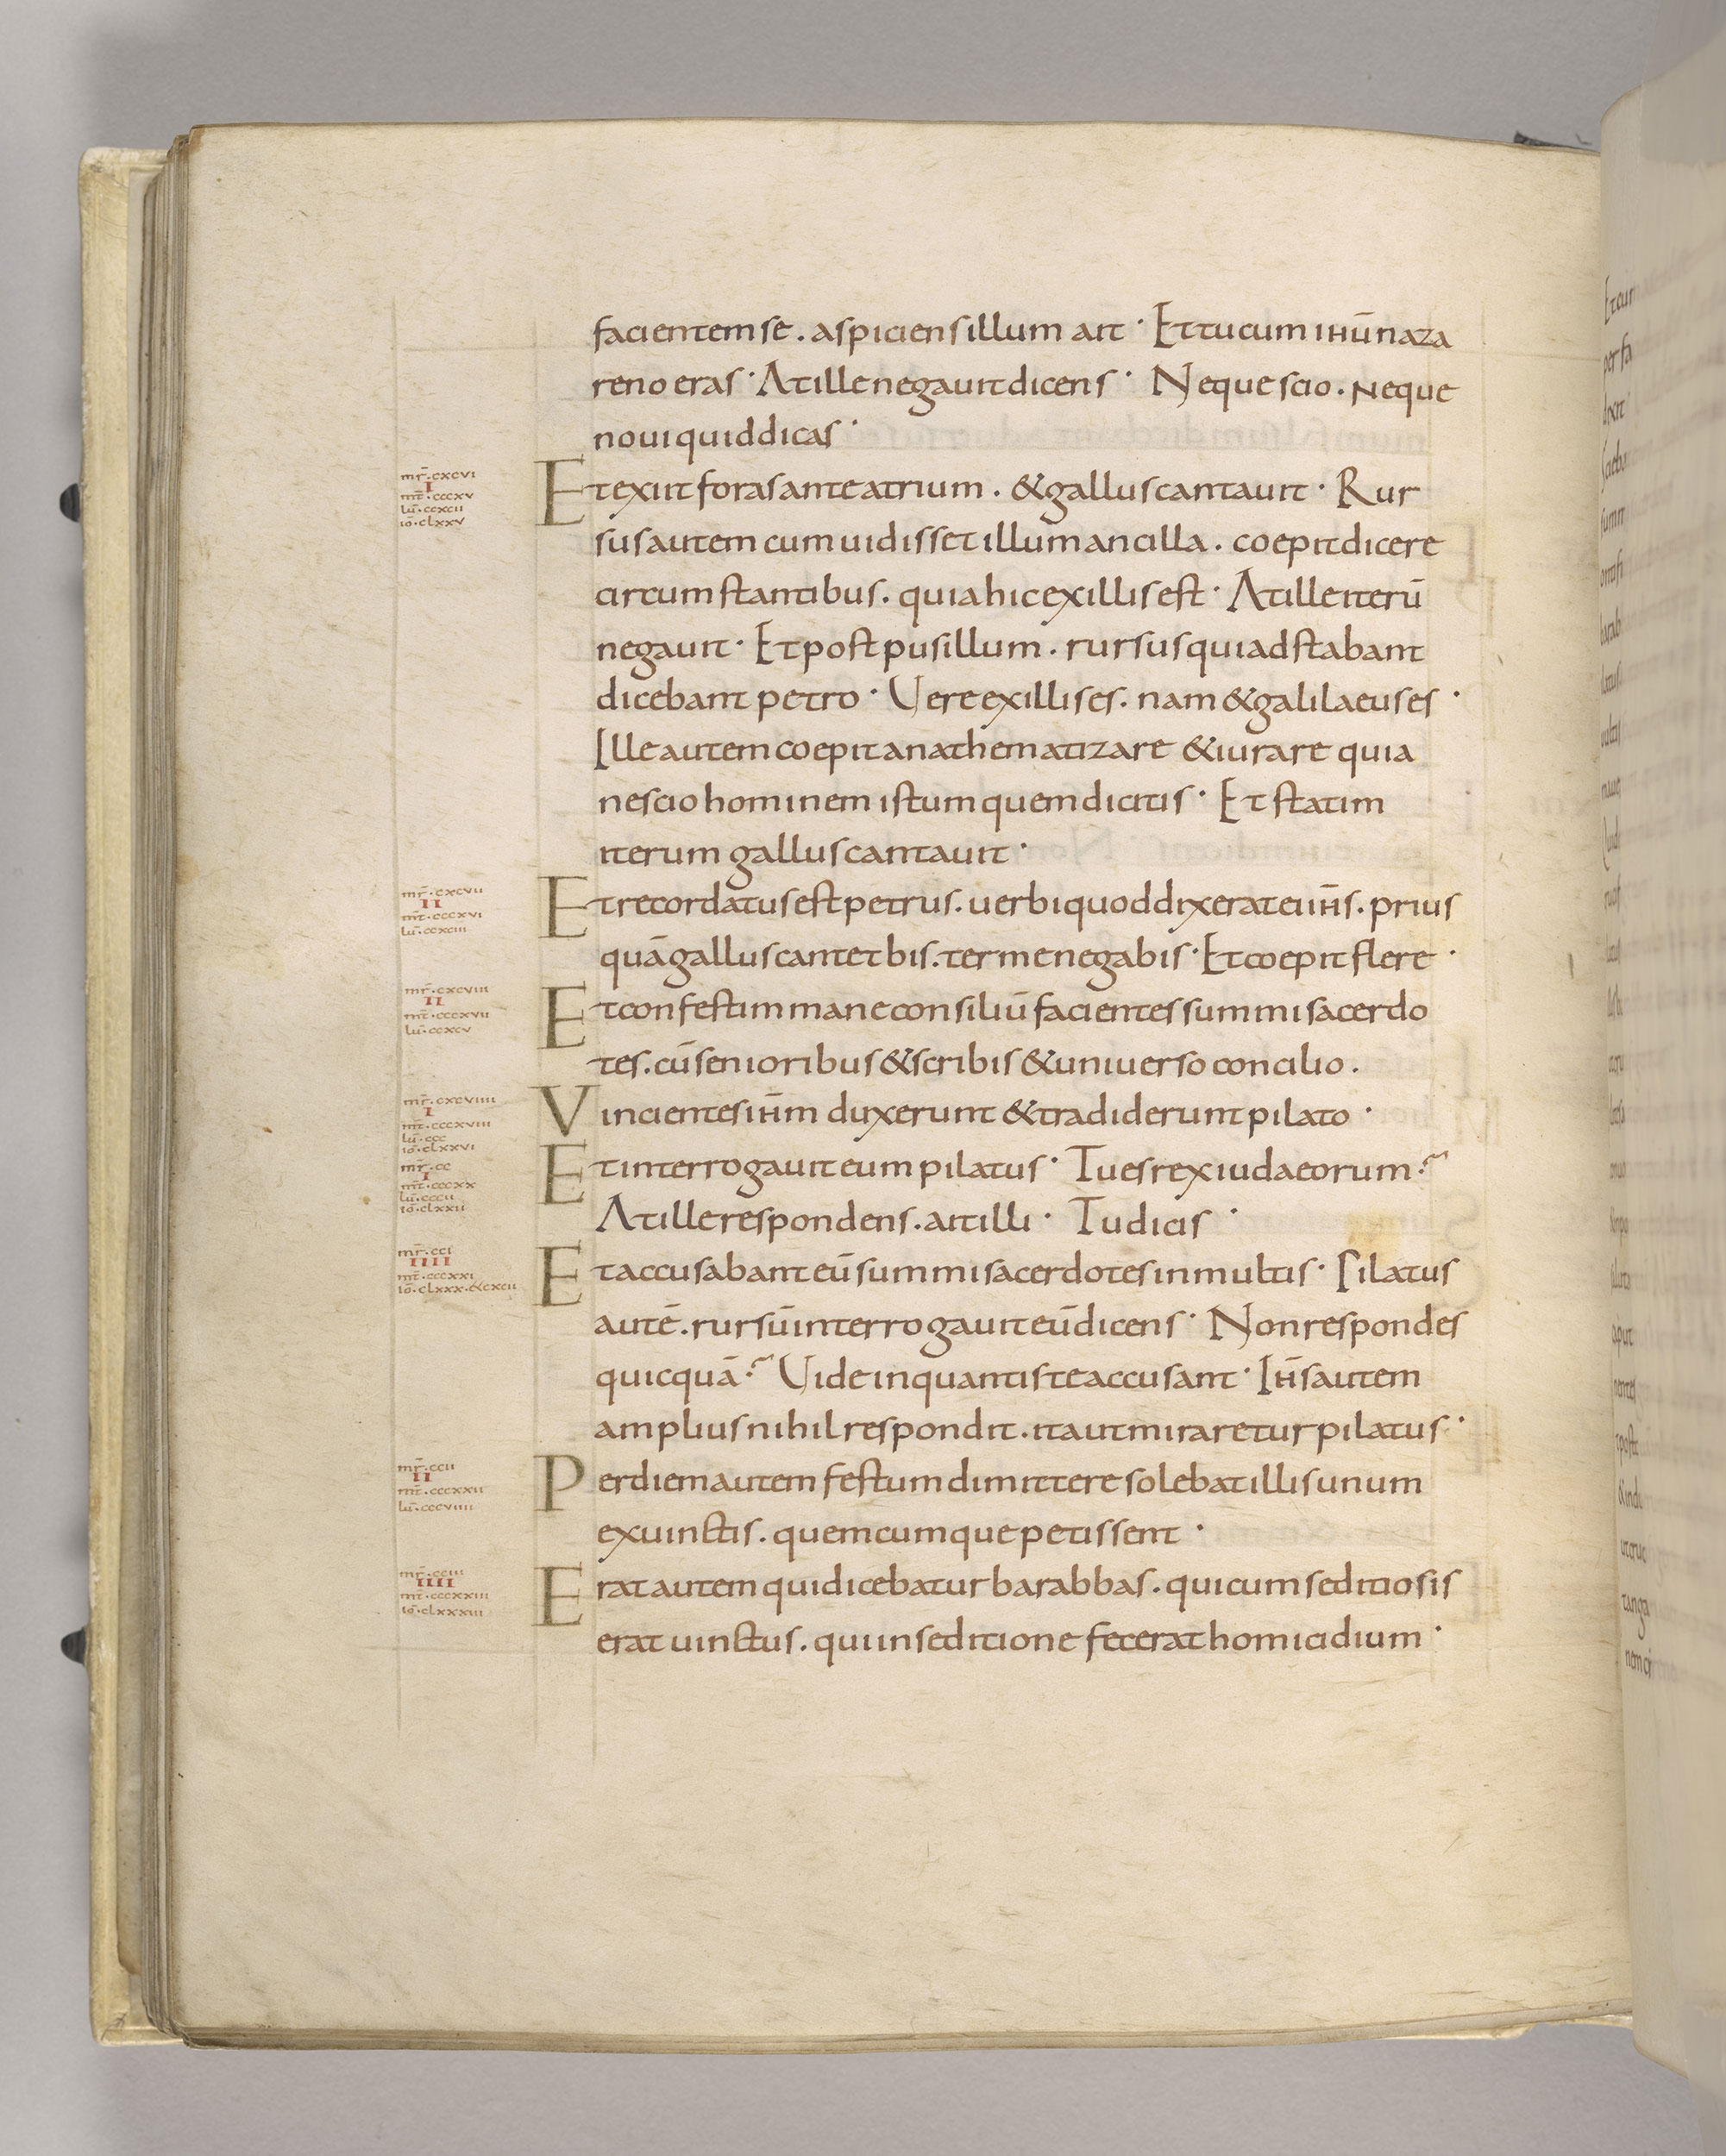 facientem se. aspiciens illum ait· Et tu cum ihū naza
reno eras· At ille negauit dicens· Neque scio. neque
noui quid dicas·
mr̄·cxcvi
I
mt̄·cccxv
lū·ccxcii
iō·clxxv
Et exiit foras ante atrium. & gallus cantauit· Rur
sus autem cum uidisset illum ancilla. coepit dicere
circumstantibus. quia hic ex illis est· At ille iterū
negauit· Et post pusillum. rursus qui adstabant
dicebant petro· Uere ex illis es. nam & galilaeus es·
Ille autem coepit anathematizare & iurare quia
nescio hominem istum quem dicitis· Et statim
iterum gallus cantauit·
mr̄·cxcvii
II
mt̄·cccxvi
lū·ccxciii
Et recordatus est petrus. uerbi quod dixerat ei ihs̄. prius
quā gallus cantet bis. ter me negabis· Et coepit flere·
mr̄·cxcviii
II
mt̄·cccxvii
lū·ccxcv
Et confestim mane consiliū facientes summi sacerdo
tes. cū senioribus & scribis & uniuerso concilio.
mr̄·cxcviiii
I
mt̄·cccxviii
lū·ccc
iō·clxxvi
Vincientes ihm̄ duxerunt & tradiderunt pilato·
mr̄·cc
I
mt̄·cccxx
lū·cccii
iō·clxxii
Et interrogauit eum pilatus· Tu es rex iudaeorum?
At ille respondens. ait illi· Tu dicis·
mr̄·cci
IIII
mt̄·cccxxi
iō·clxxx·&cxcii
Et accusabant eū summi sacerdotes in multis· Pilatus
autē. rursū interrogauit eū dicens· Non respondes
quicquā? Uide in quantis te accusant· Ihs̄ autem
amplius nihil respondit. ita ut miraretur pilatus·
mr̄·ccii
II
mt̄·cccxxii
lū·cccviiii
Per diem autem festum dimittere solebat illis unum
ex uinctis. quemcumque petissent·
mr̄·cciii
IIII
mt̄·cccxxiii
iō·clxxxiii
Erat autem qui dicebatur barabbas. qui cum seditiosis
erat uinctus. qui in seditione fecerat homicidium·